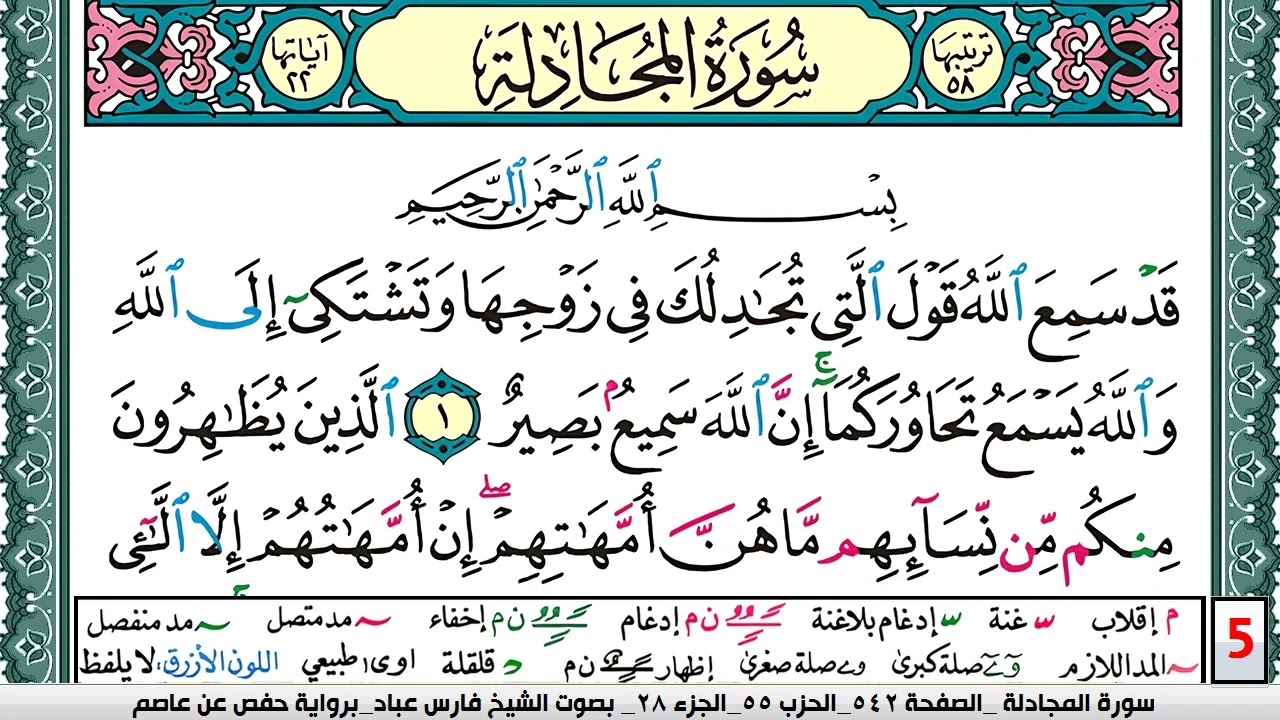 ترتيبها ٥٨
سُورَةُ المُجَادِلَةِ
آياتها ٢٢
بِسْمِ ٱللَّهِ ٱلرَّحْمَٰنِ ٱلرَّحِيمِ
قَدْ سَمِعَ ٱللَّهُ قَوْلَ ٱلَّتِى تُجَٰدِلُكَ فِى زَوْجِهَا وَتَشْتَكِىٓ إِلَى ٱللَّهِ
وَٱللَّهُ يَسْمَعُ تَحَاوُرَكُمَآ ۚ إِنَّ ٱللَّهَ سَمِيعُۢ بَصِيرٌ ١ ٱلَّذِينَ يُظَٰهِرُونَ
مِنكُم مِّن نِّسَآئِهِم مَّا هُنَّ أُمَّهَٰتِهِمْ ۖ إِنْ أُمَّهَٰتُهُمْ إِلَّا ٱلَّٰٓـِٔى
م إقلاب س غنة س إدغام بلاغنة ن م إدغام ن م إخفاء مد متصل مد منفصل
المد اللازم صلة كبرى صلة صغرى إظهار ن م قلقلة د اوى طبيعي اللون الأزرق: لا يلفظ
5
سورة المجادلة _الصفحة ٥٤٢_الحزب ٥٥_الجزء ٢٨_ بصوت الشيخ فارس عباد_برواية حفص عن عاصم